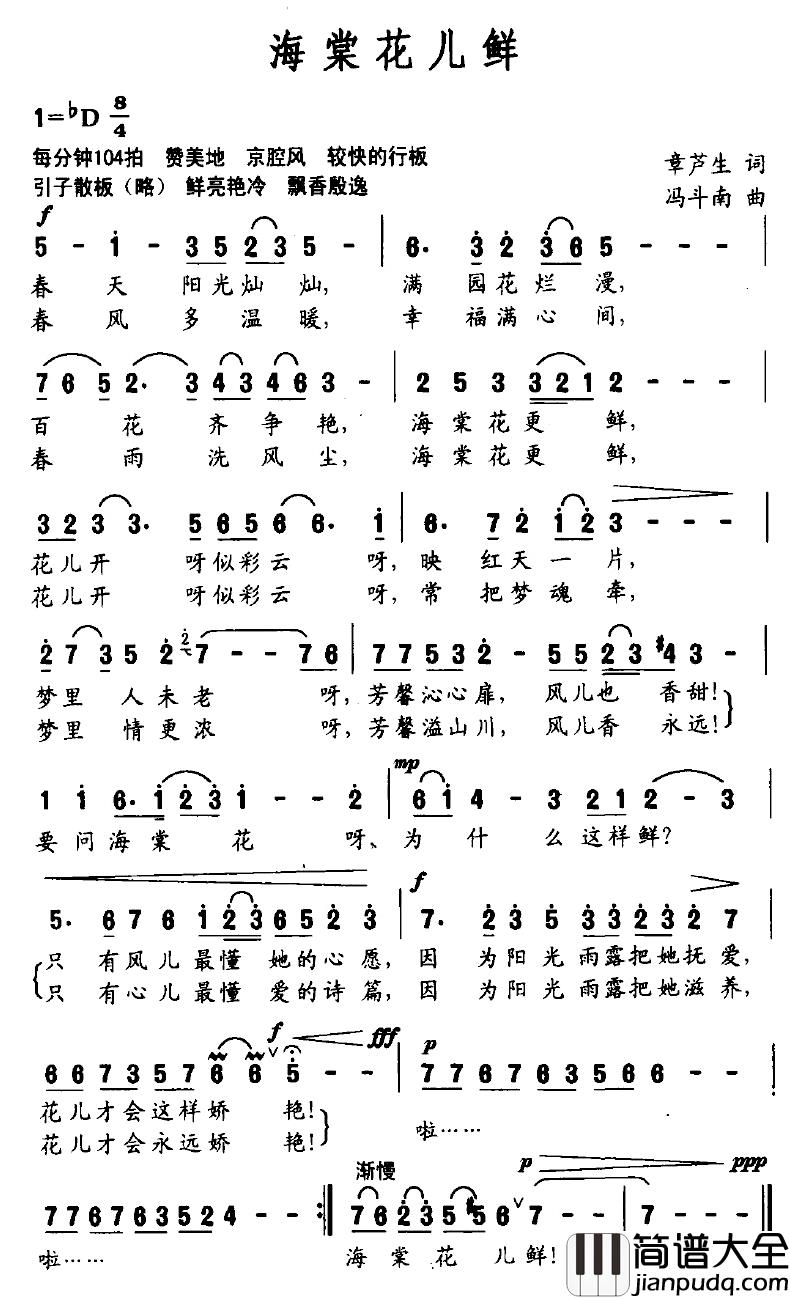 海棠花儿鲜
1=♭D 8/4
每分钟104拍 赞美地 京腔风 较快的行板
章芦生 词
引子散板（略） 鲜亮艳冷 飘香殷逸
冯斗南 曲
f
5 - 1 - 3 5 2 3 5 - | 6. 3 2 3 6 5 - - - |
春 天 阳光灿 灿, 满 园花烂 漫,
春 风 多 温 暖, 幸 福满心 间,
7 6 5 2. 3 4 3 4 6 3 - | 2 5 3 3 3 2 1 2 - - - |
百 花 齐 争 艳, 海 棠 花 更 鲜,
春 雨 洗 风 尘, 海 棠 花 更 鲜,
3 2 3 3. 5 6 5 6 6. 1 | 6. 7 2 1 2 3 - - - |
花儿开 呀似彩云 呀, 映 红天一 片,
花儿开 呀似彩云 呀, 常 把梦魂 牵,
2 7 3 5 2 2 7 - - 7 6 | 7 7 5 3 2 - 5 5 2 3 #4 3 |
梦里 人未老 呀, 芳馨沁心扉, 风儿也 香甜!
梦里 情更浓 呀, 芳馨溢山川, 风儿香 永远!
mp
1 1 6. 1 2 3 1 - - 2 | 6 1 4 - 3 2 1 2 - 3 |
要问海棠 花 呀、为 什 么这样鲜?
f
5. 6 7 6 1 2 3 6 5 2 3 | 7. 2 3 5 3 3 2 3 2 7 |
只 有风儿最懂 她的心愿, 因 为阳光雨露把她抚爱,
只 有心儿最懂 爱的诗篇, 因 为阳光雨露把她滋养,
f fff p
6 6 7 3 5 7 6 6 5 - - | 7 7 6 7 6 3 5 6 6 - - |
花儿才会这样娇 艳! 啦……
花儿才会永远娇 艳!
渐慢 p ppp
7 7 6 7 6 3 5 2 4 - - :| 7 6 2 3 5 #5 6 7 - - 7 - ||
啦…… 海棠花 儿鲜!
简谱大全
jianpudq.com